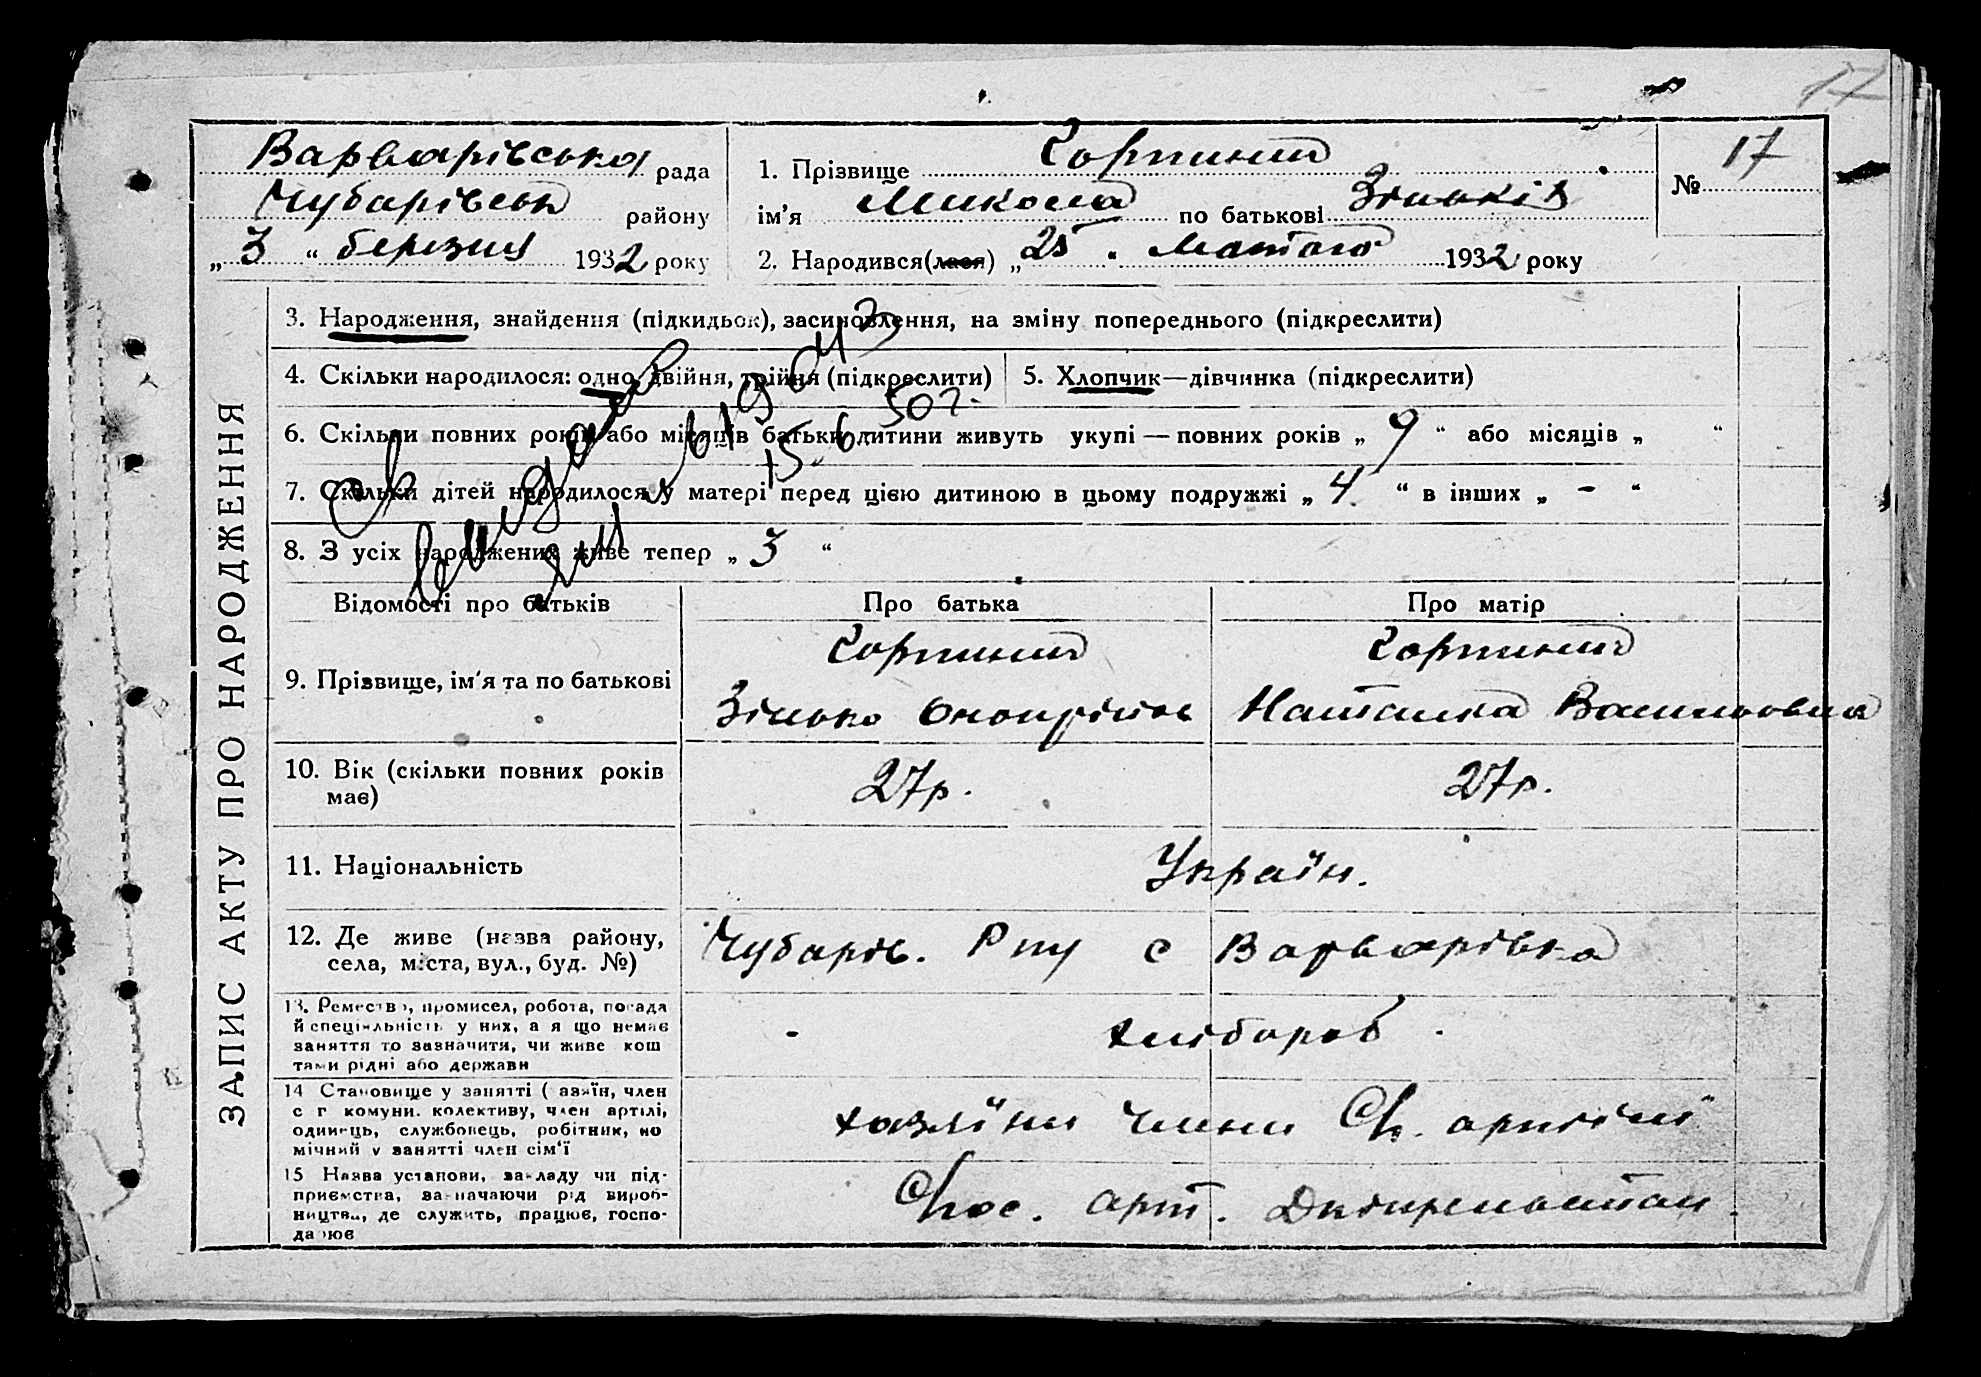 17
Варварівська рада
Чубарівськ району
„3“ березня 1932 року
1. Прізвище
ім'я Микола по батькові Зіньків
2. Народився(лася) „25“ Лютого 1932 року
№ 17
ЗАПИС АКТУ ПРО НАРОДЖЕННЯ
3. Народження, знайдення (підкидьок), засиновлення, на зміну попереднього (підкреслити)
4. Скільки народилося: одно, двійня, трійня (підкреслити)
5. Хлопчик—дівчинка (підкреслити)
6. Скільки повних років або місяців батьки дитини живуть укупі — повних років „9“ або місяців „ “
7. Скільки дітей народилося у матері перед цією дитиною в цьому подружжі „4“ в інших „-“
8. З усіх народжених живе тепер „3“
15.6.50 г.
Відомості про батьків
Про батька
Про матір
9. Прізвище, ім'я та по батькові
Зінько
Наталка Васильовна
10. Вік (скільки повних років
має)
27р.
27р.
11. Національність
Україн.
12. Де живе (назва району,
села, міста, вул., буд. №)
Чубарів. Р-ну с Варварівка
13. Ремество, промисел, робота, посада
й спеціяльність у них, а я що немає
заняття то зазначити, чи живе кош
тами рідні або держави
хлібороб
14 Становище у занятті (хазяїн, член
с г комуни. колективу, член артілі,
одинець, службовець, робітник, по
мічний у занятті член сім'ї
хазяїни члени Сг. артілі
15 Назва установи, закладу чи під-
приємства, зазначаючи рід вироб-
ництва, де служить, працює, госпо-
дарює
арт.